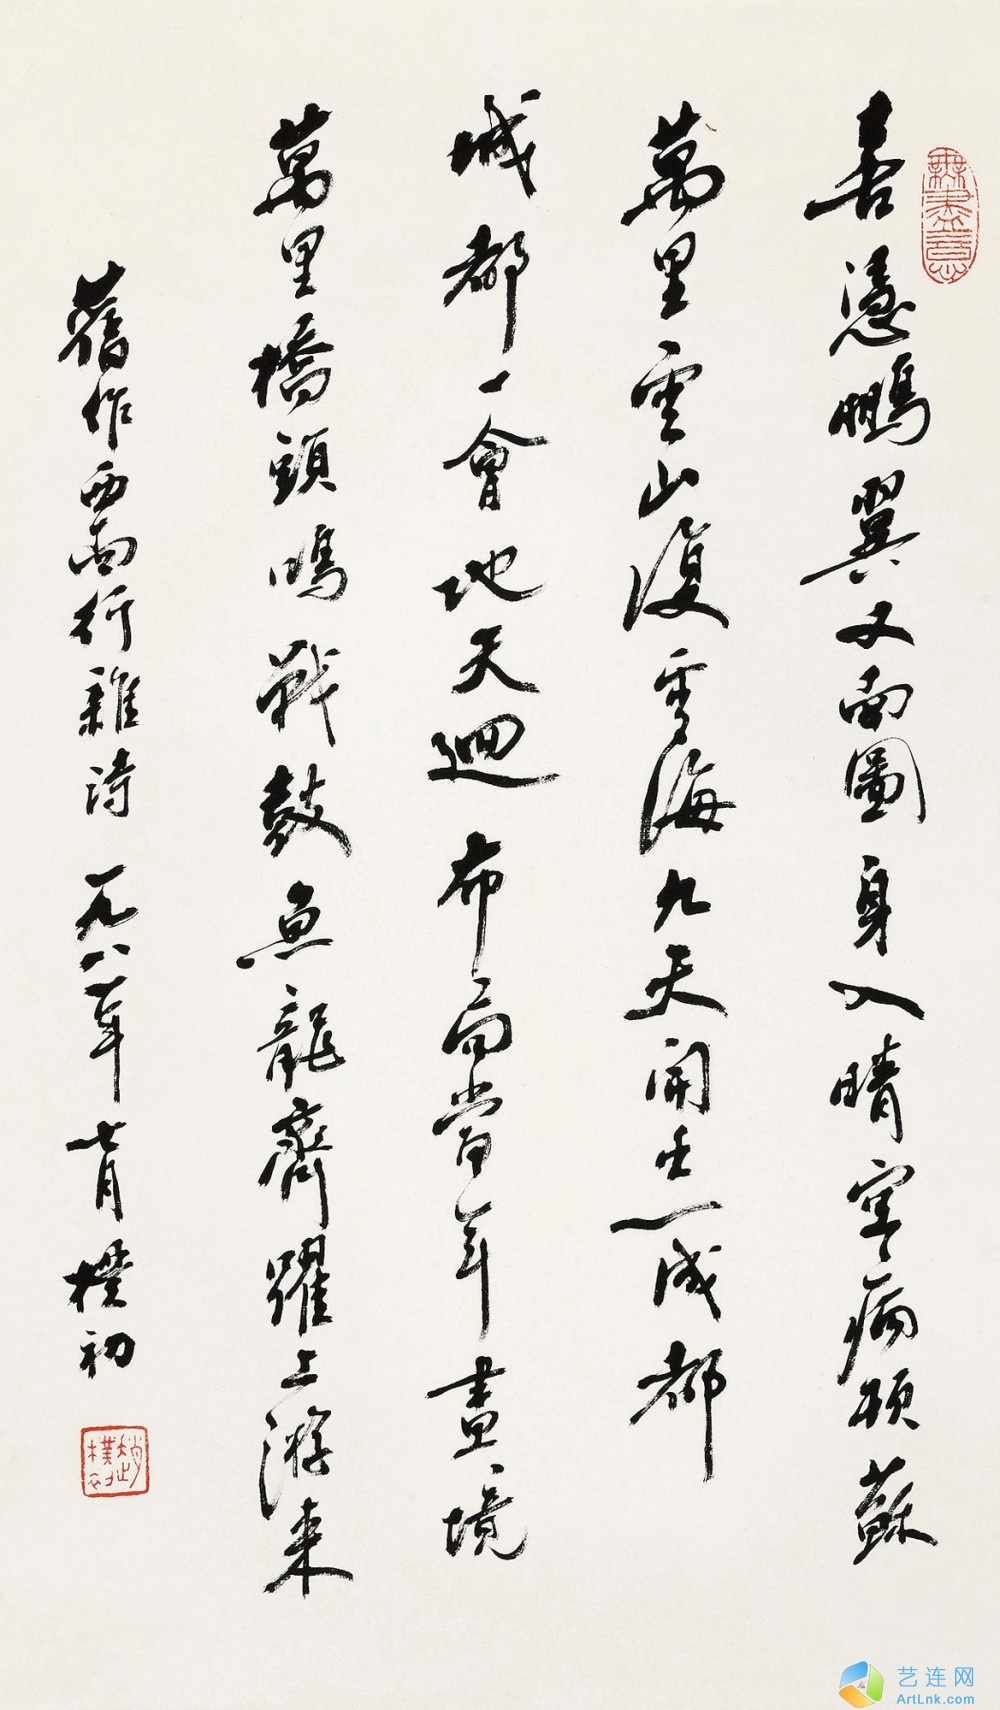 無盡意
喜憑鵬翼又南圖身入晴空病頓蘇
萬里雲山復雲海九天開出一成都
城都一會地天迴布局當年畫境
萬里橋頭鳴戰鼓魚龍齊躍上游來
舊作西南行雜詩 一九八一年七月 樸初
趙樸初
艺连网
ArtLnk.com